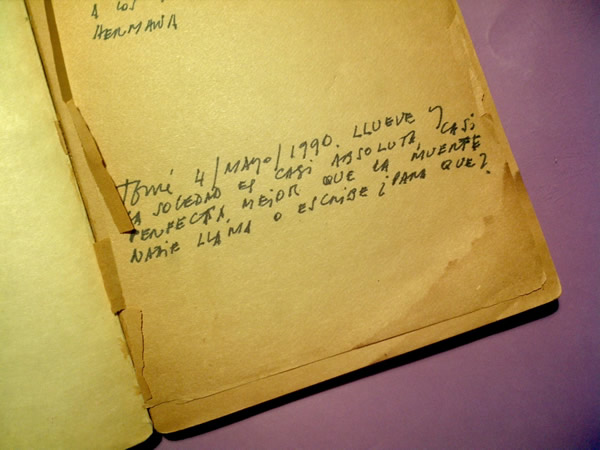 A LOS
HERMANA
TOMÉ 4/MAYO/1990. LLUEVE Y
LA SOLEDAD ES CASI ABSOLUTA, CASI
PERFECTA, MEJOR QUE LA MUERTE
NADIE LLAMA O ESCRIBE ¿PARA QUE?.